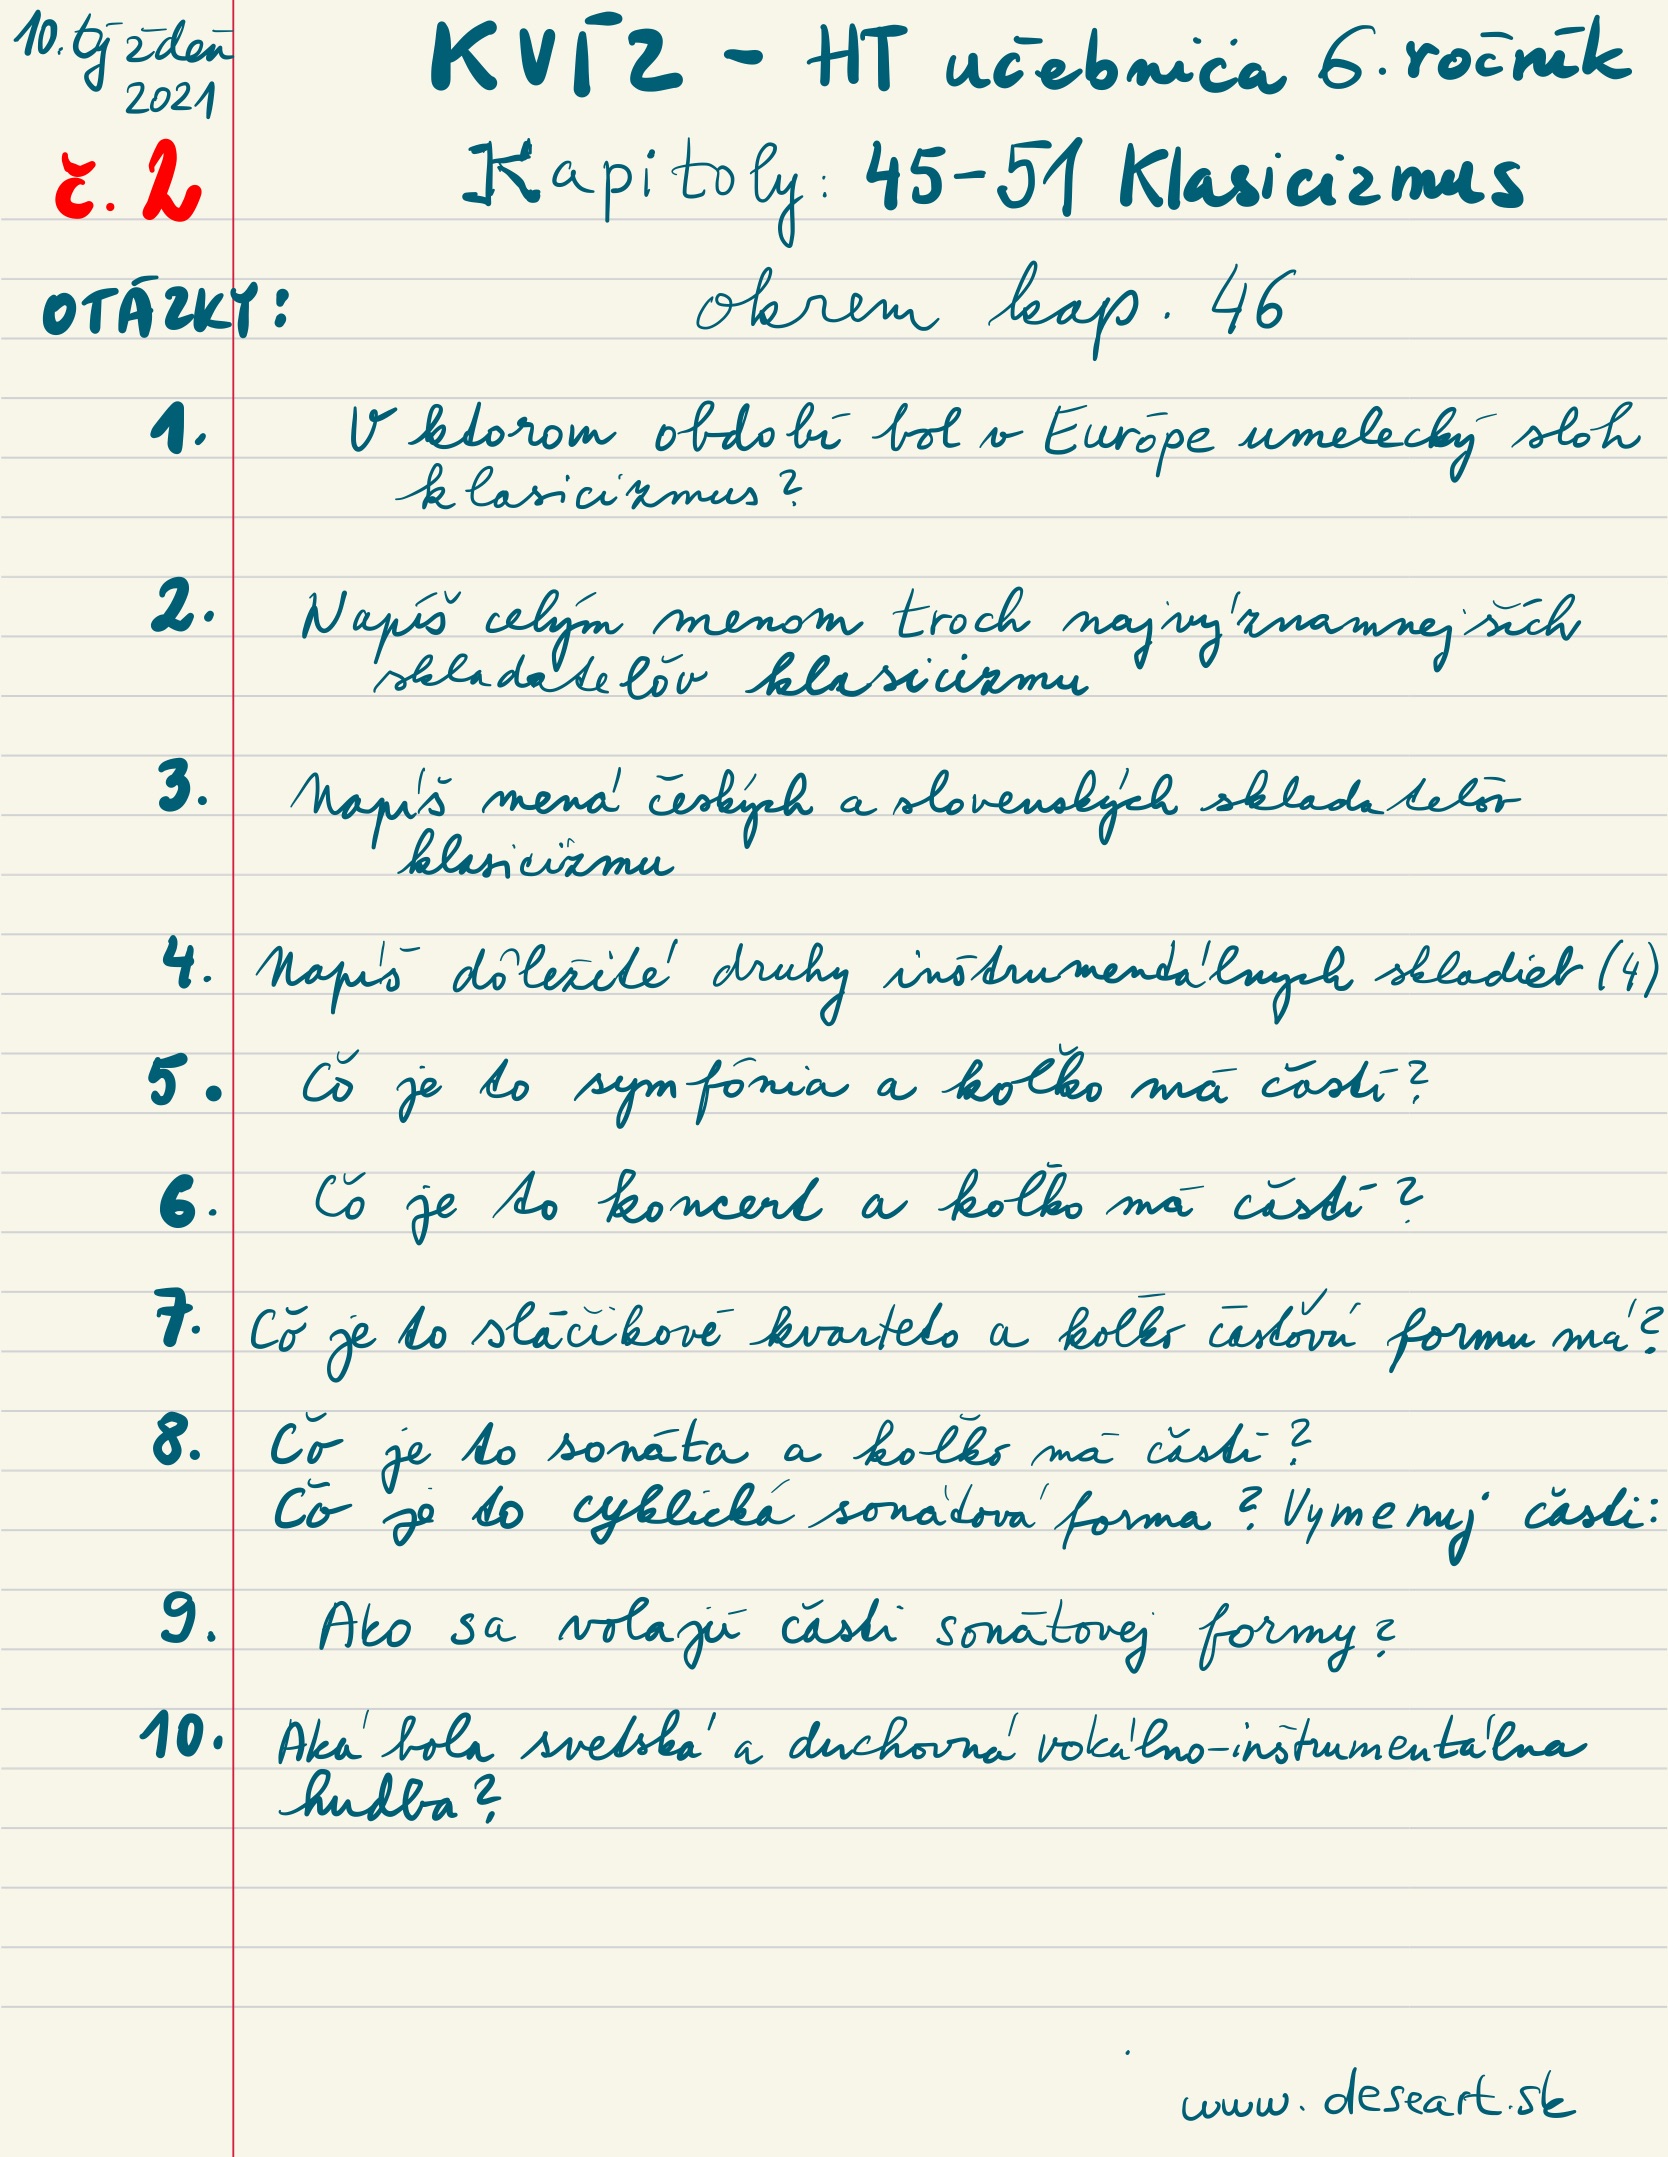 10. týždeň
2021
č. 2
KVÍZ - HT učebnica 6. ročník
Kapitoly: 45-51 Klasicizmus
okrem kap. 46
OTÁZKY:
1. V ktorom období bol v Európe umelecký sloh
klasicizmus?
2. Napíš celým menom troch najvýznamnejších
skladateľov klasicizmu
3. Napíš mená českých a slovenských skladateľov
klasicizmu
4. Napíš dôležité druhy inštrumentálnych skladieb (4)
5. Čo je to symfónia a koľko má častí?
6. Čo je to koncert a koľko má častí?
7. Čo je to sláčikové kvarteto a koľko časťovú formu má?
8. Čo je to sonáta a koľko má častí?
Čo je to cyklická sonátová forma? Vymenuj časti:
9. Ako sa volajú časti sonátovej formy?
10. Aká bola svetská a duchovná vokálno-inštrumentálna
hudba?
www.deseart.sk